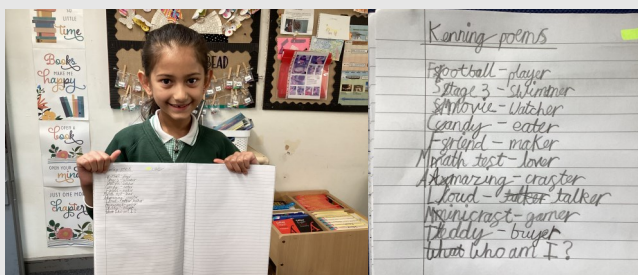 LITTLE
time
Books
MAKE ME
happy
book
mind
JUST ONE MORE
chapter
EAD
Kenning poems
Football - player
Stage 3 - Swimmer
Movie - Watcher
Candy - eater
friend - maker
Math test - lover
Amazing - craster
Loud - talker talker
Minicrast - gamer
Teddy - buyer
What Who am I?